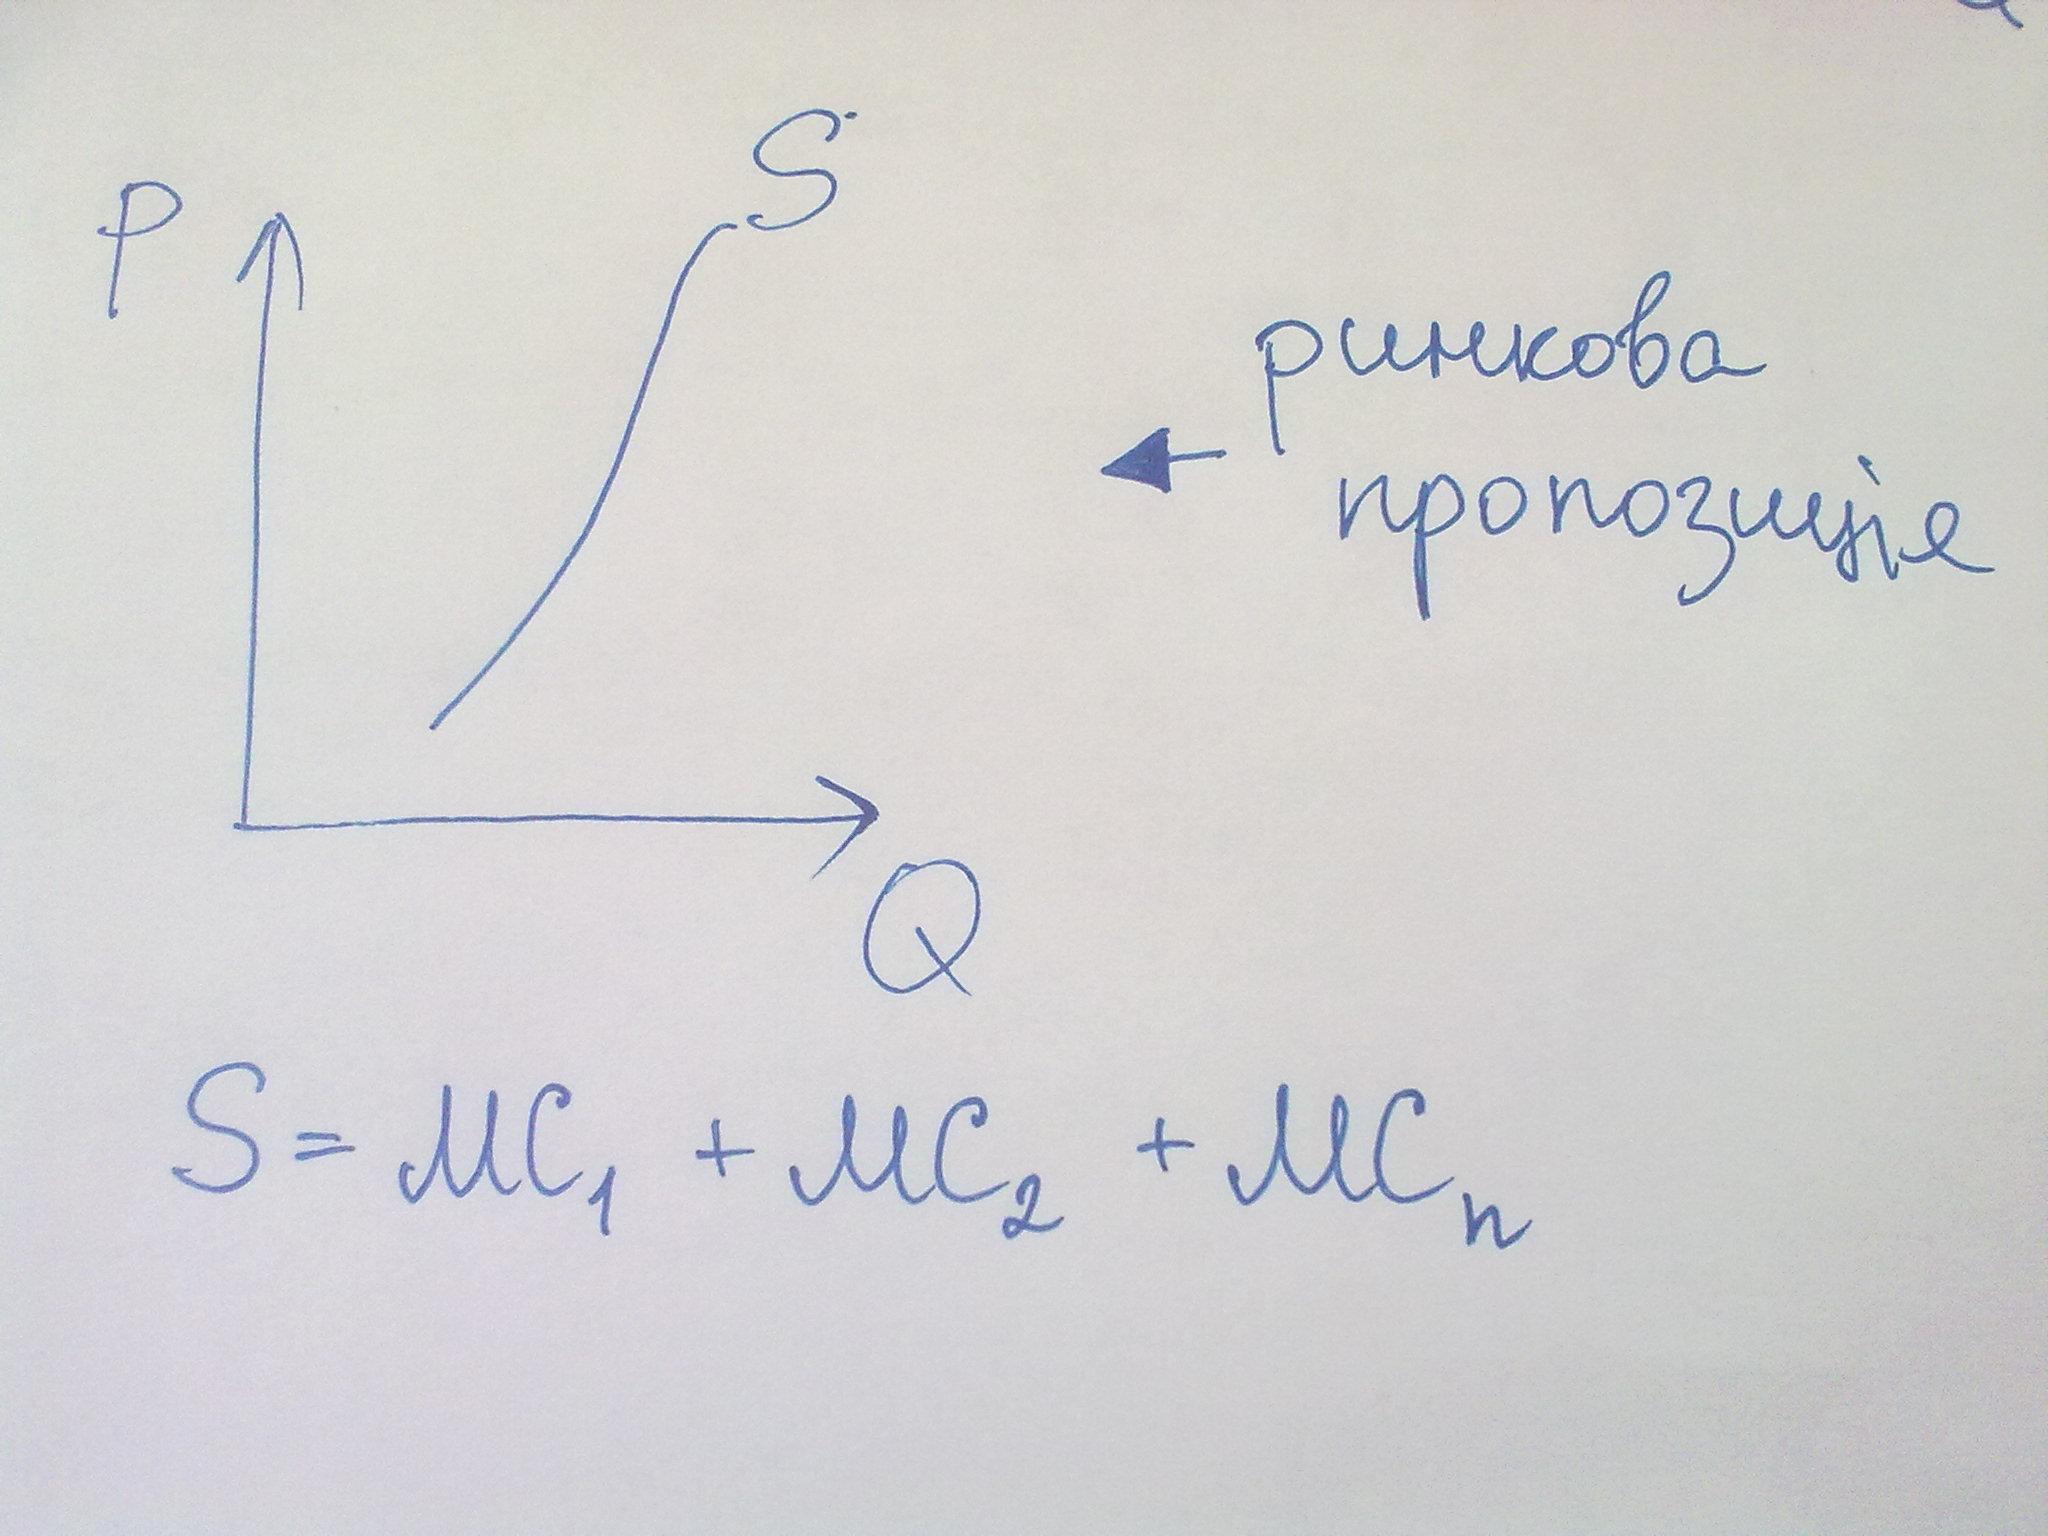 S
P
ринкова
пропозиція
Q
S = MC₁ + MC₂ + MCₙ